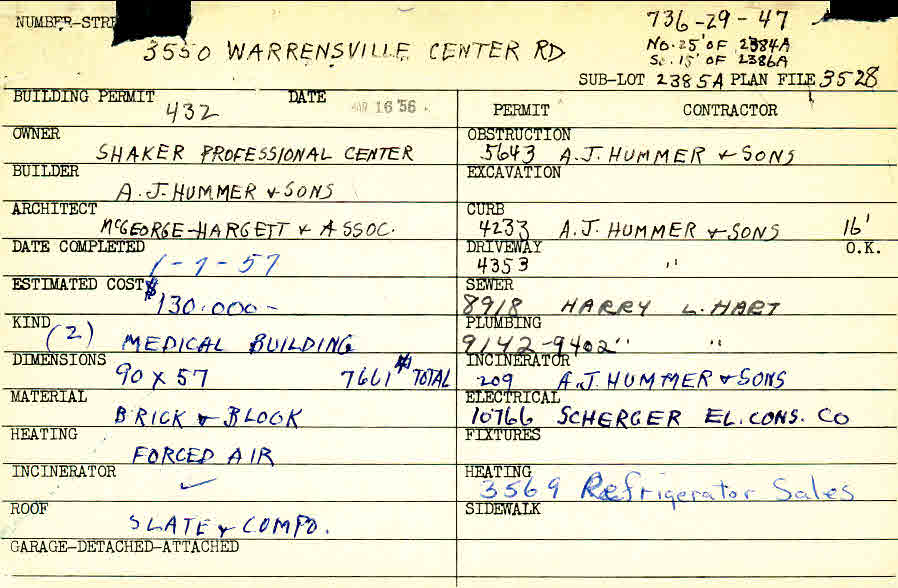 NUMBER-STRE
3550 WARRENSVILLE CENTER RD
736-29-47
No. 25' OF 2384A
So. 15' OF 2386A
SUB-LOT 2385A PLAN FILE 3528
BUILDING PERMIT 432 DATE 16 '56
OWNER SHAKER PROFESSIONAL CENTER
BUILDER A.J. HUMMER & SONS
ARCHITECT McGEORGE-HARGETT & ASSOC.
DATE COMPLETED 1-7-57
ESTIMATED COST $130.000-
KIND (2) MEDICAL BUILDING
DIMENSIONS 90 X 57 7661 # TOTAL
MATERIAL BRICK & BLOCK
HEATING FORCED AIR
INCINERATOR ✓
ROOF SLATE & COMPO.
GARAGE-DETACHED-ATTACHED
PERMIT CONTRACTOR
OBSTRUCTION 5643 A.J. HUMMER & SONS
EXCAVATION
CURB 4233 A.J. HUMMER & SONS 16'
DRIVEWAY 4353 " O.K.
SEWER 8918 HARRY L. HART
PLUMBING 9142-9402 " "
INCINERATOR 209 A.J. HUMMER & SONS
ELECTRICAL 10766 SCHERGER EL. CONS. CO
FIXTURES
HEATING 3569 Refrigerator Sales
SIDEWALK